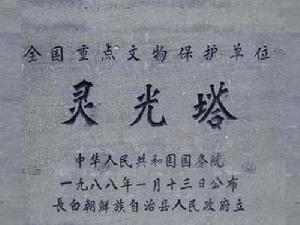 全国重点文物保护单位
灵光塔
中华人民共和国国务院
一九八八年一月十三日公布
長白朝鲜族自治县人民政府立